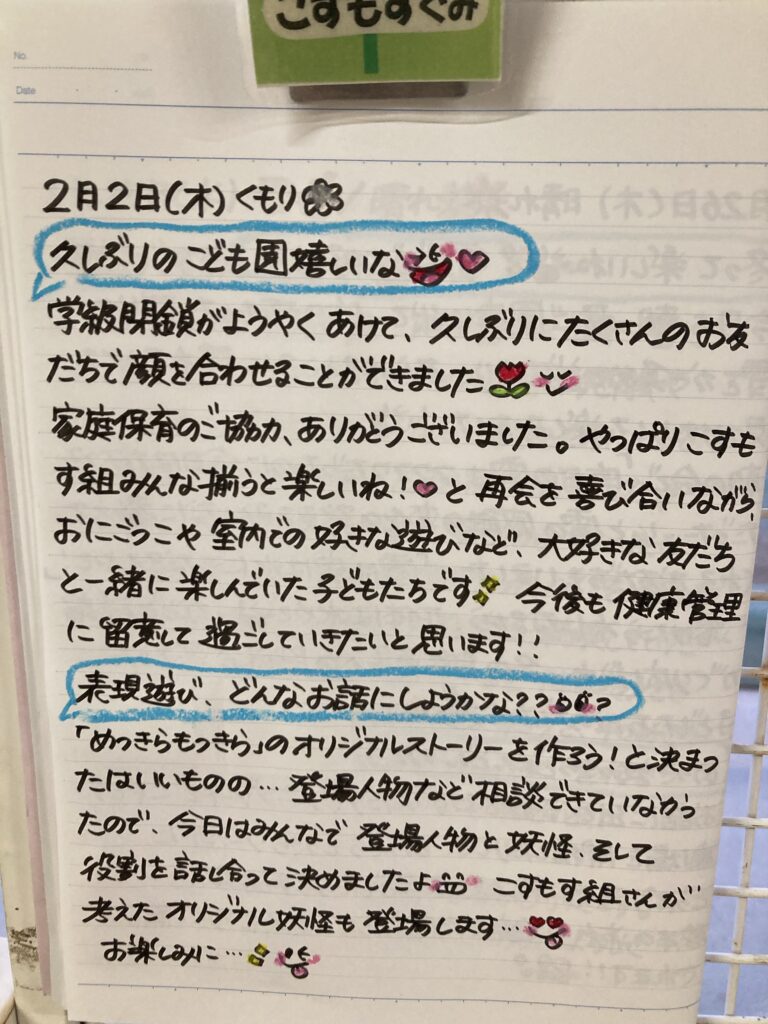 こすもすぐみ
No.
Date
2月2日(木) くもり
久しぶりのこども園嬉しいな
学級閉鎖がようやくあけて、久しぶりにたくさんのお友
だちで顔を合わせることができました
家庭保育のご協力、ありがとうございました。やっぱりこすも
す組みんな揃うと楽しいね!♡と再会を喜び合いながら、
おにごっこや室内での好きな遊びなど、大好きな友だち
と一緒に楽しんでいた子どもたちです 今後も健康管理
に留意して過ごしていきたいと思います!!
表現遊び、どんなお話にしようかな???
「めっきらもっきら」のオリジナルストーリーを作ろう!と決まっ
たはいいものの…登場人物など相談できていなかっ
たので、今日はみんなで登場人物と妖怪、そして
役割を話し合って決めましたよ こすもす組さんが
考えたオリジナル妖怪も登場します…
お楽しみに…